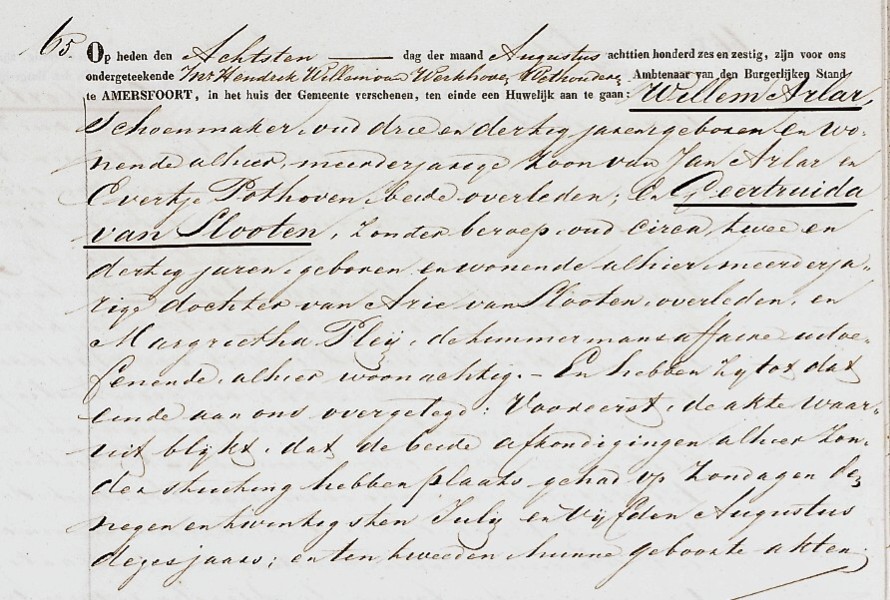 65. Op heden den Achtsten dag der maand Augustus achttien honderd zes en zestig, zijn voor ons
ondergeteekende Mr Hendrik Willem van Werkhoven, Wethouder, Ambtenaar van den Burgerlijken Stand
te AMERSFOORT, in het huis der Gemeente verschenen, ten einde een Huwelijk aan te gaan: Willem Arlar,
Schoenmaker, oud drie en dertig jaren, geboren en wo-
nende alhier, meerderjarige zoon van Jan Arlar en
Evertje Pothoven, beide overleden; En Geertruida
van Slooten, zonder beroep, oud circa twee en
dertig jaren, geboren en wonende alhier, meerderja-
rige dochter van Arie van Slooten, overleden, en
Margrietha Pleij, de timmermansaffaire uitoe-
fenende, alhier woonachtig. – En hebben zij tot dat
einde aan ons overgelegd: Vooreerst, de akte waar-
uit blijkt, dat de beide afkondigingen alhier zon-
der stuiting hebben plaats gehad op Zondagen den
negen en twintigsten Julij en Vijfden Augustus
dezes jaars; en ten tweeden hunne geboorte akten;